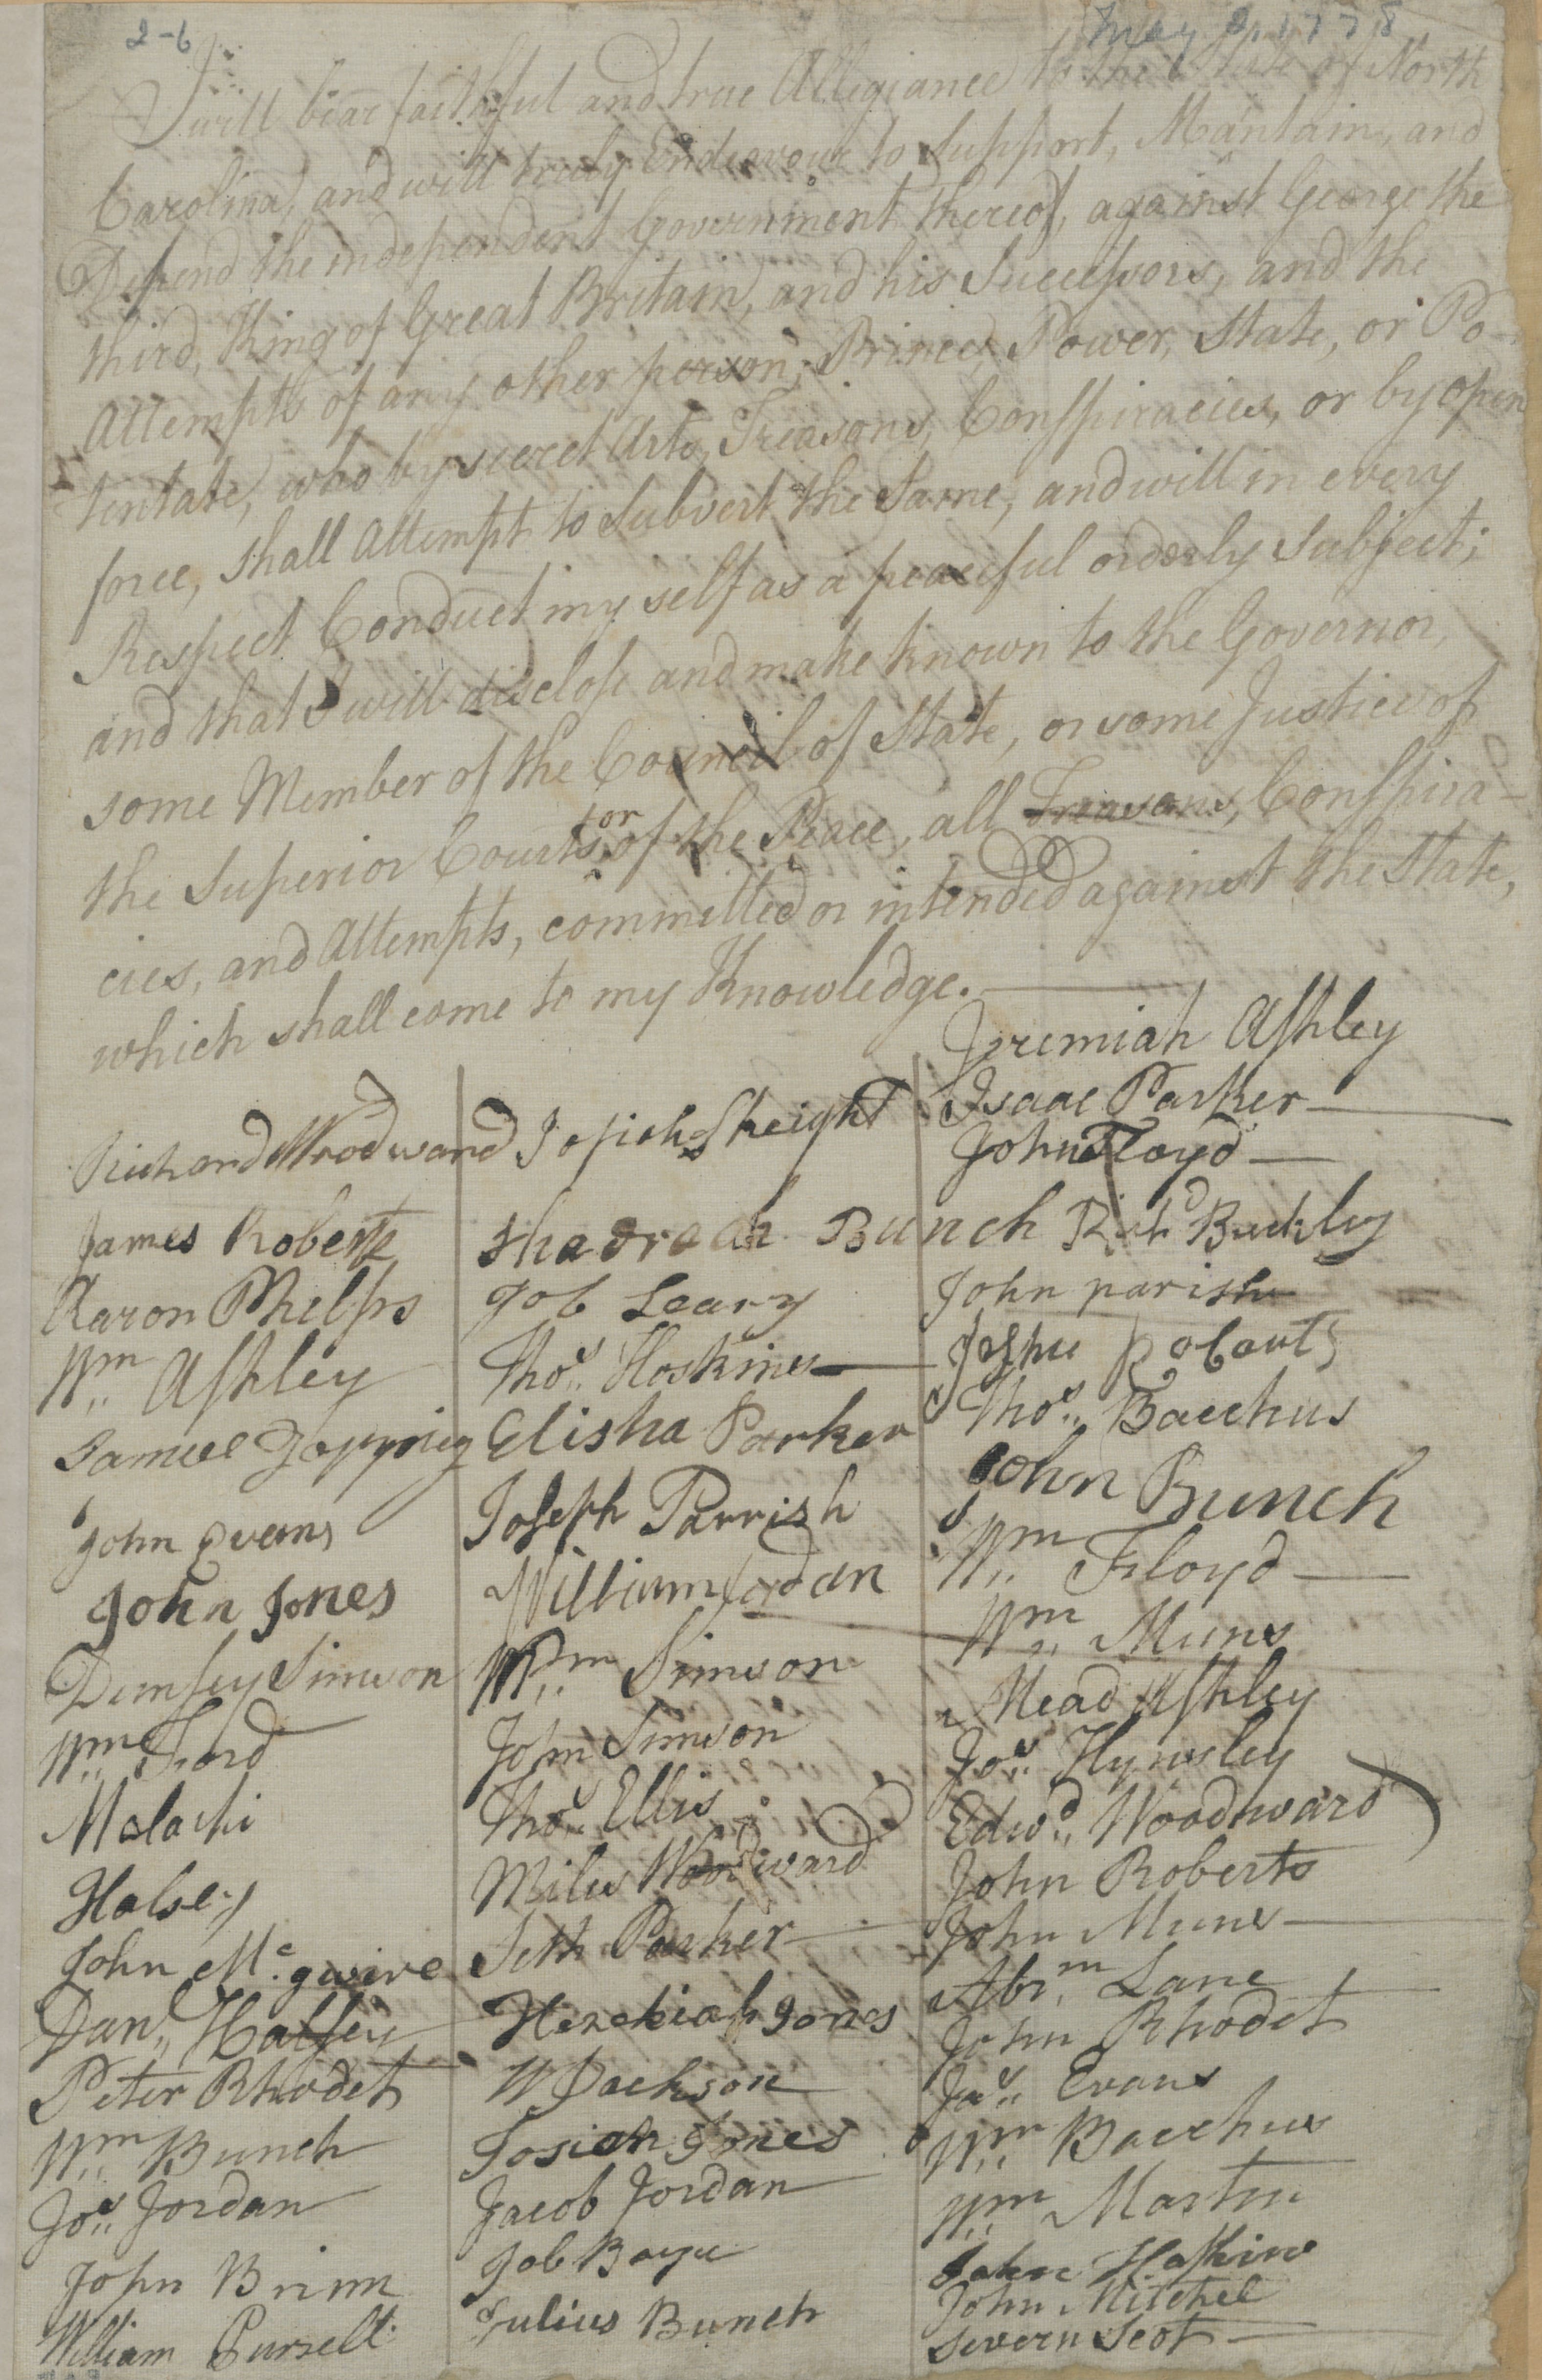 2-6
May 2, 1778
I will bear faithful and true Allegiance to the State of North
Carolina, and will truly Endeavour to Support, Mantain, and
Defend the independent Government thereof, against George the
third, King of Great Britain, and his Successors, and the
Attempts of any other person, Prince, Power, State, or Po-
tentate, who by secret Arts, Treasons, Conspiracies, or by open
force, shall Attempt to Subvert the Same, and will in every
Respect Conduct my self as a peaceful orderly Subject;
and that I will disclose and make known to the Governor,
some Member of the Council of State, or some Justice of
the Superior Courts, or of the Peace, all Treasons, Conspira-
cies, and Attempts, committed or intended against the State,
which shall come to my Knowledge.
Richard Woodward
James Roberts
Aaron Phelps
Wm. Ashley
Samuel Topping
John Evans
John Jones
Demsey Simson
Wm. Ford
Malachi
Halsey
John Mc. gwire
Danl. Halsey
Peter Rhodet
Wm. Bunch
Jos. Jordan
John Brinn
William Pursell
Josiah Speight
Shadrach Bunch
Job Leary
Thos. Hoskins
Elisha Parker
Joseph Parrish
William Jordan
Wm. Simson
John Simson
Thos. Ellis
Miles Woodward
Seth Parker
Hezekiah Jones
W Jackson
Josiah Jones
Jacob Jordan
Job
Julius Bunch
Jeremiah Ashley
Isaac Parker
John Floyd
Richd Buckley
John parish
Roberts
Thos. Bacchus
John Bunch
Wm. Floyd
Wm. Muns
Nead Ashley
Jos. Hynsley
Edwd. Woodward
John Roberts
John Muns
Abrm. Lane
John Rhodet
Jas. Evans
Wm. Bacchus
Wm. Martin
John Hoskins
John Mitchel
Severn Scot